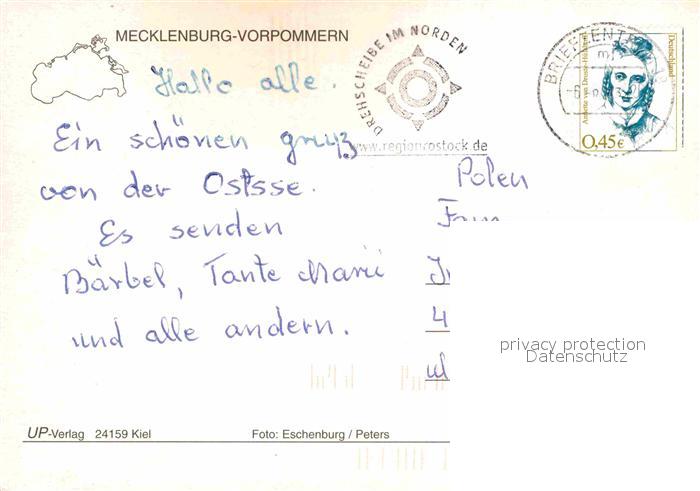 MECKLENBURG-VORPOMMERN
DREHSCHEIBE IM NORDEN
www.regionrostock.de
BRIEFZENTRUM
Deutschland
Annette von Droste-Hülshoff
0,45€
Hallo alle.
Ein schönen gruß
von der Ostsse.
Es senden
Bärbel, Tante Marii
und alle andern.
Polen
Fam
4
privacy protection
Datenschutz
UP-Verlag 24159 Kiel
Foto: Eschenburg / Peters